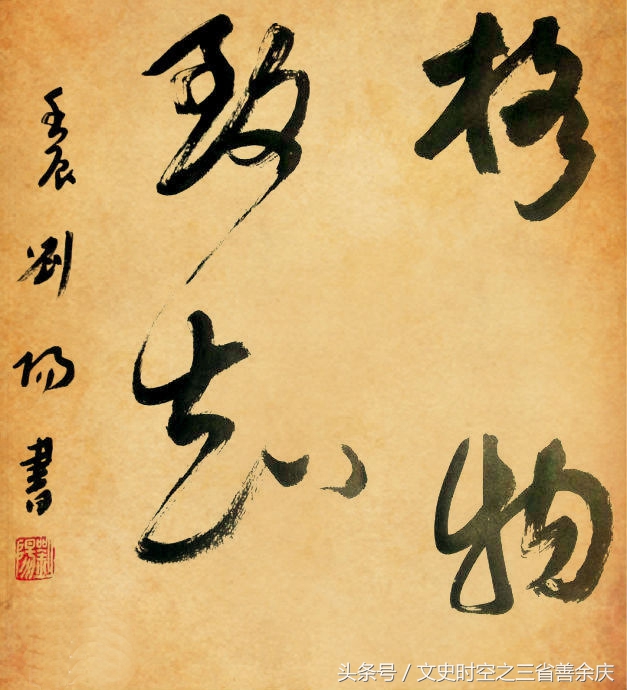 格物
致知
壬辰劉陽書
劉陽
头条号／文史时空之三省善余庆